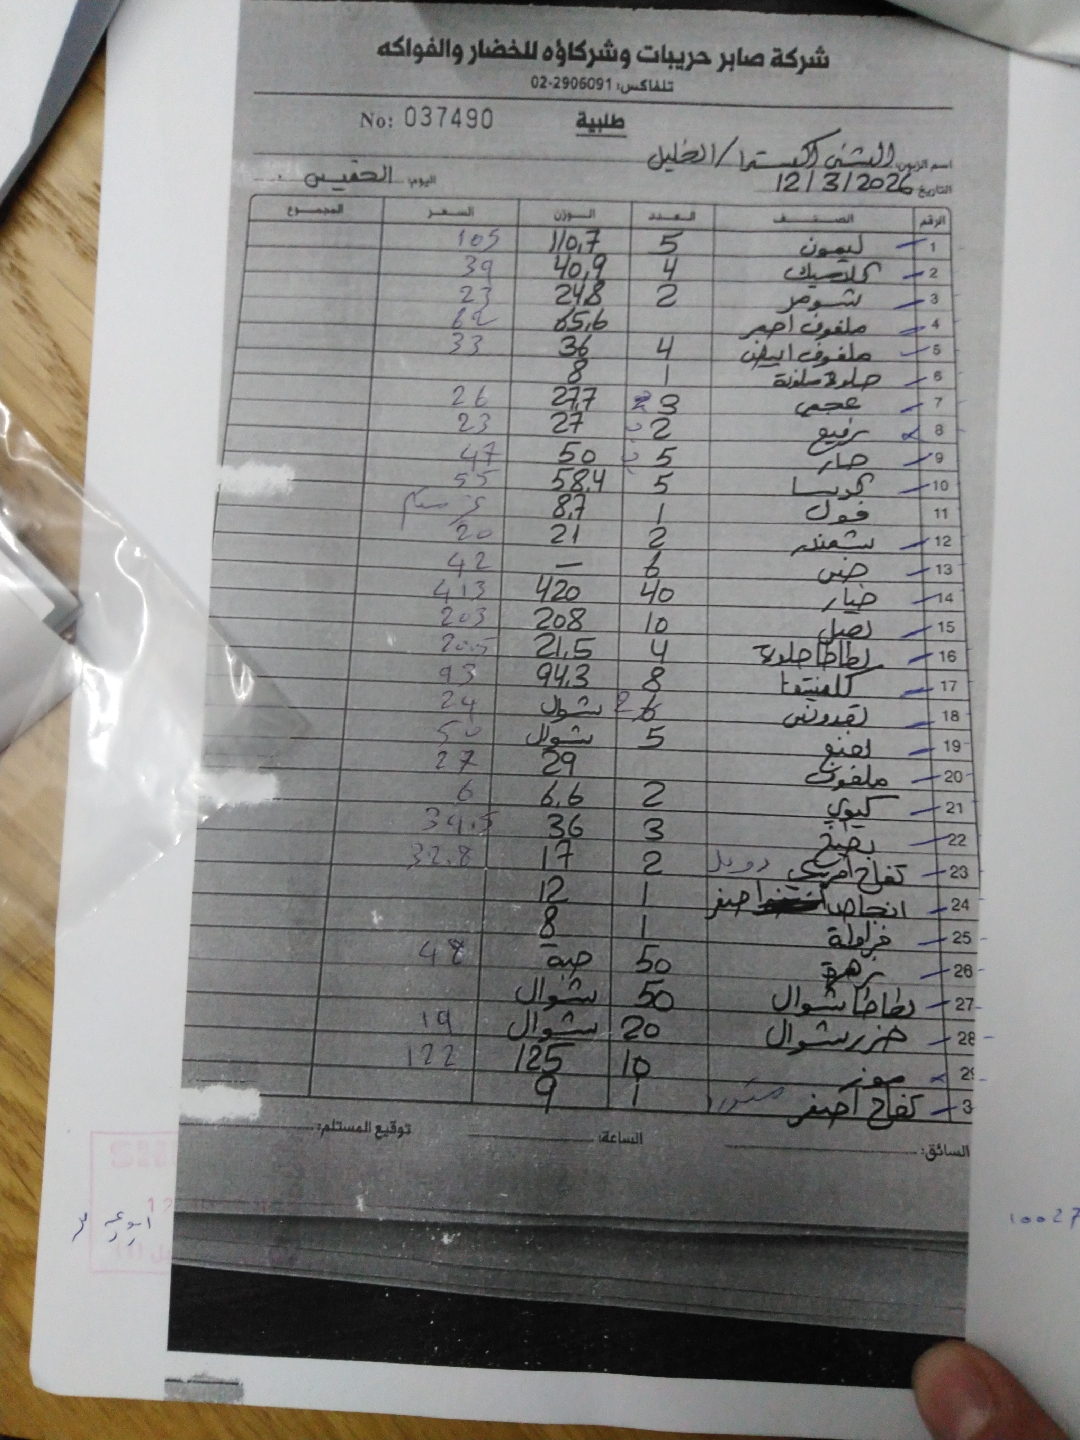 شركة صابر حريبات وشركاؤه للخضار والفواكه
تلفاكس: 02-2906091
No: 037490 طلبية
اسم الزبون: / الخليل
التاريخ 12/3/2026 اليوم:
الرقم الصنف العدد الوزن السعر المجموع
1 ليمون 5 110,7 105
2 كلاسيك 4 40,9 39
3 شومر 2 24,8 23
4 ملفوف احمر 65,6 62
5 ملفوف ابيض 4 36 33
6 حلوة ملونة 1 8
7 عجمي 3 27,7 26
8 رفيع 2 27 23
9 حار 5 50 47
10 كوسا 5 58,4 55
11 فول 1 8,7
12 شمندر 2 21 20
13 خس 6 — 42
14 خيار 40 420 413
15 بصل 10 208 203
16 بطاطا حلوة 4 21,5 20.5
17 كلمنتينا 8 94,3 93
18 بقدونس 6 شوال 24
19 نعنع 5 شوال 50
20 ملفوف 29 27
21 كيوي 2 6,6 6
22 بطيخ 3 36 34.5
23 تفاح امريكي 2 17 32.8
24 انجاص اصفر 1 12
25 فراولة 1 8
26 زهرة 50 حبة 48
27 بطاطا شوال 50 شوال
28 جزر شوال 20 شوال 19
29 موز 10 125 122
3 تفاح اصفر 1 9
السائق: الساعة: توقيع المستلم:
10027